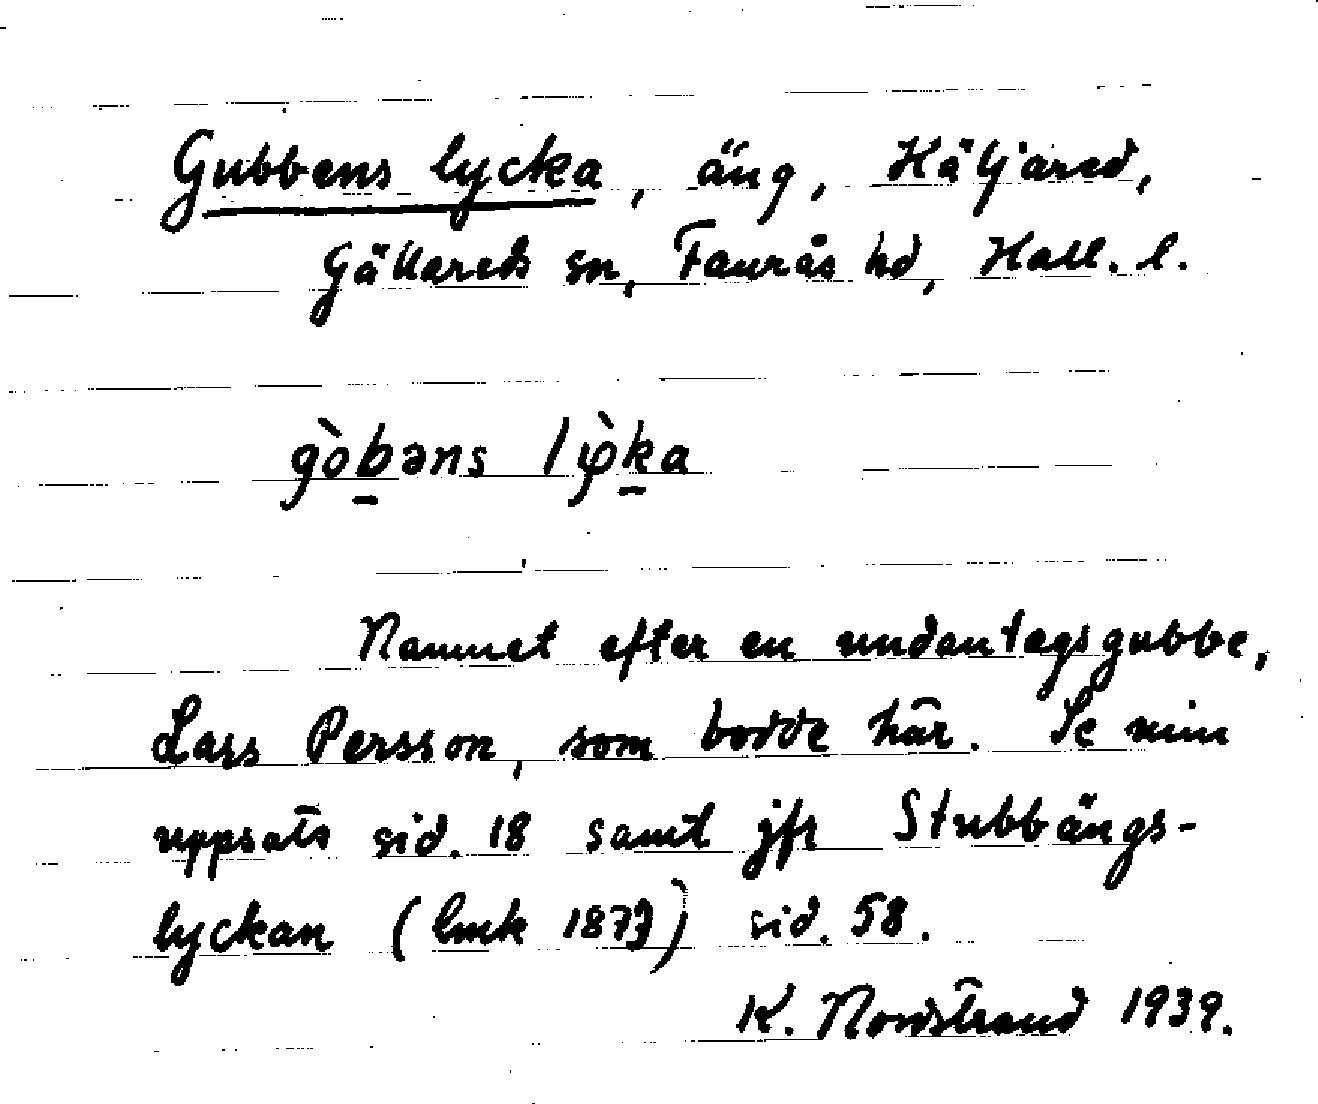 Gubbens lycka, äng, Häljared,
Gällareds sn, Faurås hd, Hall. l.
gòbəns lỳka
Namnet efter en undantagsgubbe,
Lars Persson, som bodde här. Se min
uppsats sid. 18 samt jfr Stubbängs-
lyckan (lmk 1877) sid. 58.
K. Nordstrand 1939.